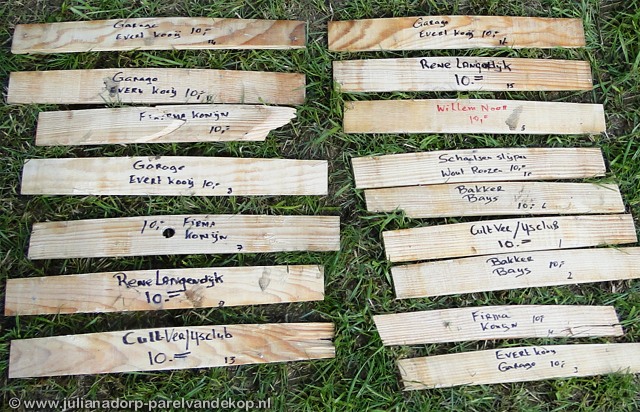 Garage
Evert Kooij 10,-
Garage
Evert Kooij 10,-
Firma Konijn
10,-
Garage
Evert Kooij 10,-
3
10,- Firma
Konijn
7
Rene Langendijk
10.=
9
Cult.Ver/Ysclub
10.=
13
Garage
Evert Kooij 10,-
Rene Langendijk
10.=
15
Willem Noot
10,-
5
Schaatsen slijpen
Wout 10,-
Bakker
Bays
10,- 6
Cult Ver/Ysclub
10.=
1
Bakker 10,-
Bays
2
Firma 10,-
Konijn
Evert Kooij
Garage 10,-
3
© www.julianadorp-parelvandekop.nl